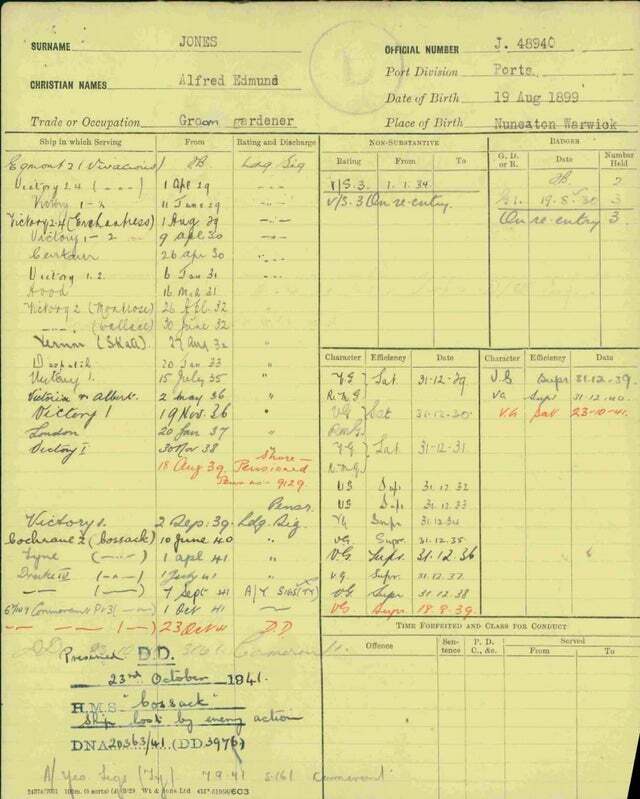 SURNAME JONES
OFFICIAL NUMBER J. 48940
CHRISTIAN NAMES Alfred Edmund
Port Division Ports
Date of Birth 19 Aug 1899
Trade or Occupation Groom gardener
Place of Birth Nuneaton Warwick
Ship in which Serving From Rating and Discharge
Egmont 2 (Vivacious) Ldg. Sig
Victory 1 Apr 29
Victory 1-2 11 June 29
Victory (Enchantress) 1 Aug 29
Victory 1-2 9 Apl 30
Centaur 26 apr 30
Victory 1.2. 6 Jan 31
Hood 16 Mch 31
Victory 2 (Montrose) 26 Apl. 32
(Wallace) 30 June 32
Vernon (Skate) 27 Aug 32
Dispatch 20 Jan 33
Victory 1. 15 July 35
Victoria & Albert. 2 May 36
Victory 1 19 Nov. 36
London 20 Jan 37
Victory I 30 Nov 38
18 Aug 39 Shore - Pensioned
Pens no - 9129
Pensr.
Victory 1. 2 Sep. 39. Ldg. Sig
Cochrane 2 (Cossack) 10 June 40 "
Tyne 1 apl 41 "
Drake IV 1 July 41 "
7 Sept 41 A/Y Sigs (Ty)
Cormorant 1 Oct 41
23 Oct 41 D.D.
NON-SUBSTANTIVE
Rating From To
V/S. 3. 1. 1. 34.
V/S. 3 On re-entry.
BADGES
G. D. or R. Date Number Held
OB. 2
G 1. 19.8.30 3
On re-entry 3.
Character Efficiency Date
VG Sat. 31-12-29
R.M.G.
VG Sat 31-12-30
R.M.G.
VG Sat. 31-12-31
R.M.G.
VG Supr. 31.12.32
VG Supr. 31.12.33
VG Supr 31.12.34
VG Supr. 31.12.35
VG Supr. 31.12.36
VG. Supr. 31.12.37
VG Supr. 31.12.38
VG Supr. 18.8.39
Character Efficiency Date
V.G. Supr 31.12.39.
VG Supr 31.12.40
V.G Sat 23-10-41.
TIME FORFEITED AND CLASS FOR CONDUCT
Offence Sentence P. D. C., &c. Served
From To
Presumed D.D.
23rd October 1941.
H.M.S. "Cossack"
Ship lost by enemy action
DNA 20363/41 (DD 3976)
A/Yeo Sigs (Ty) 7.9.41 S.161 Cormorant